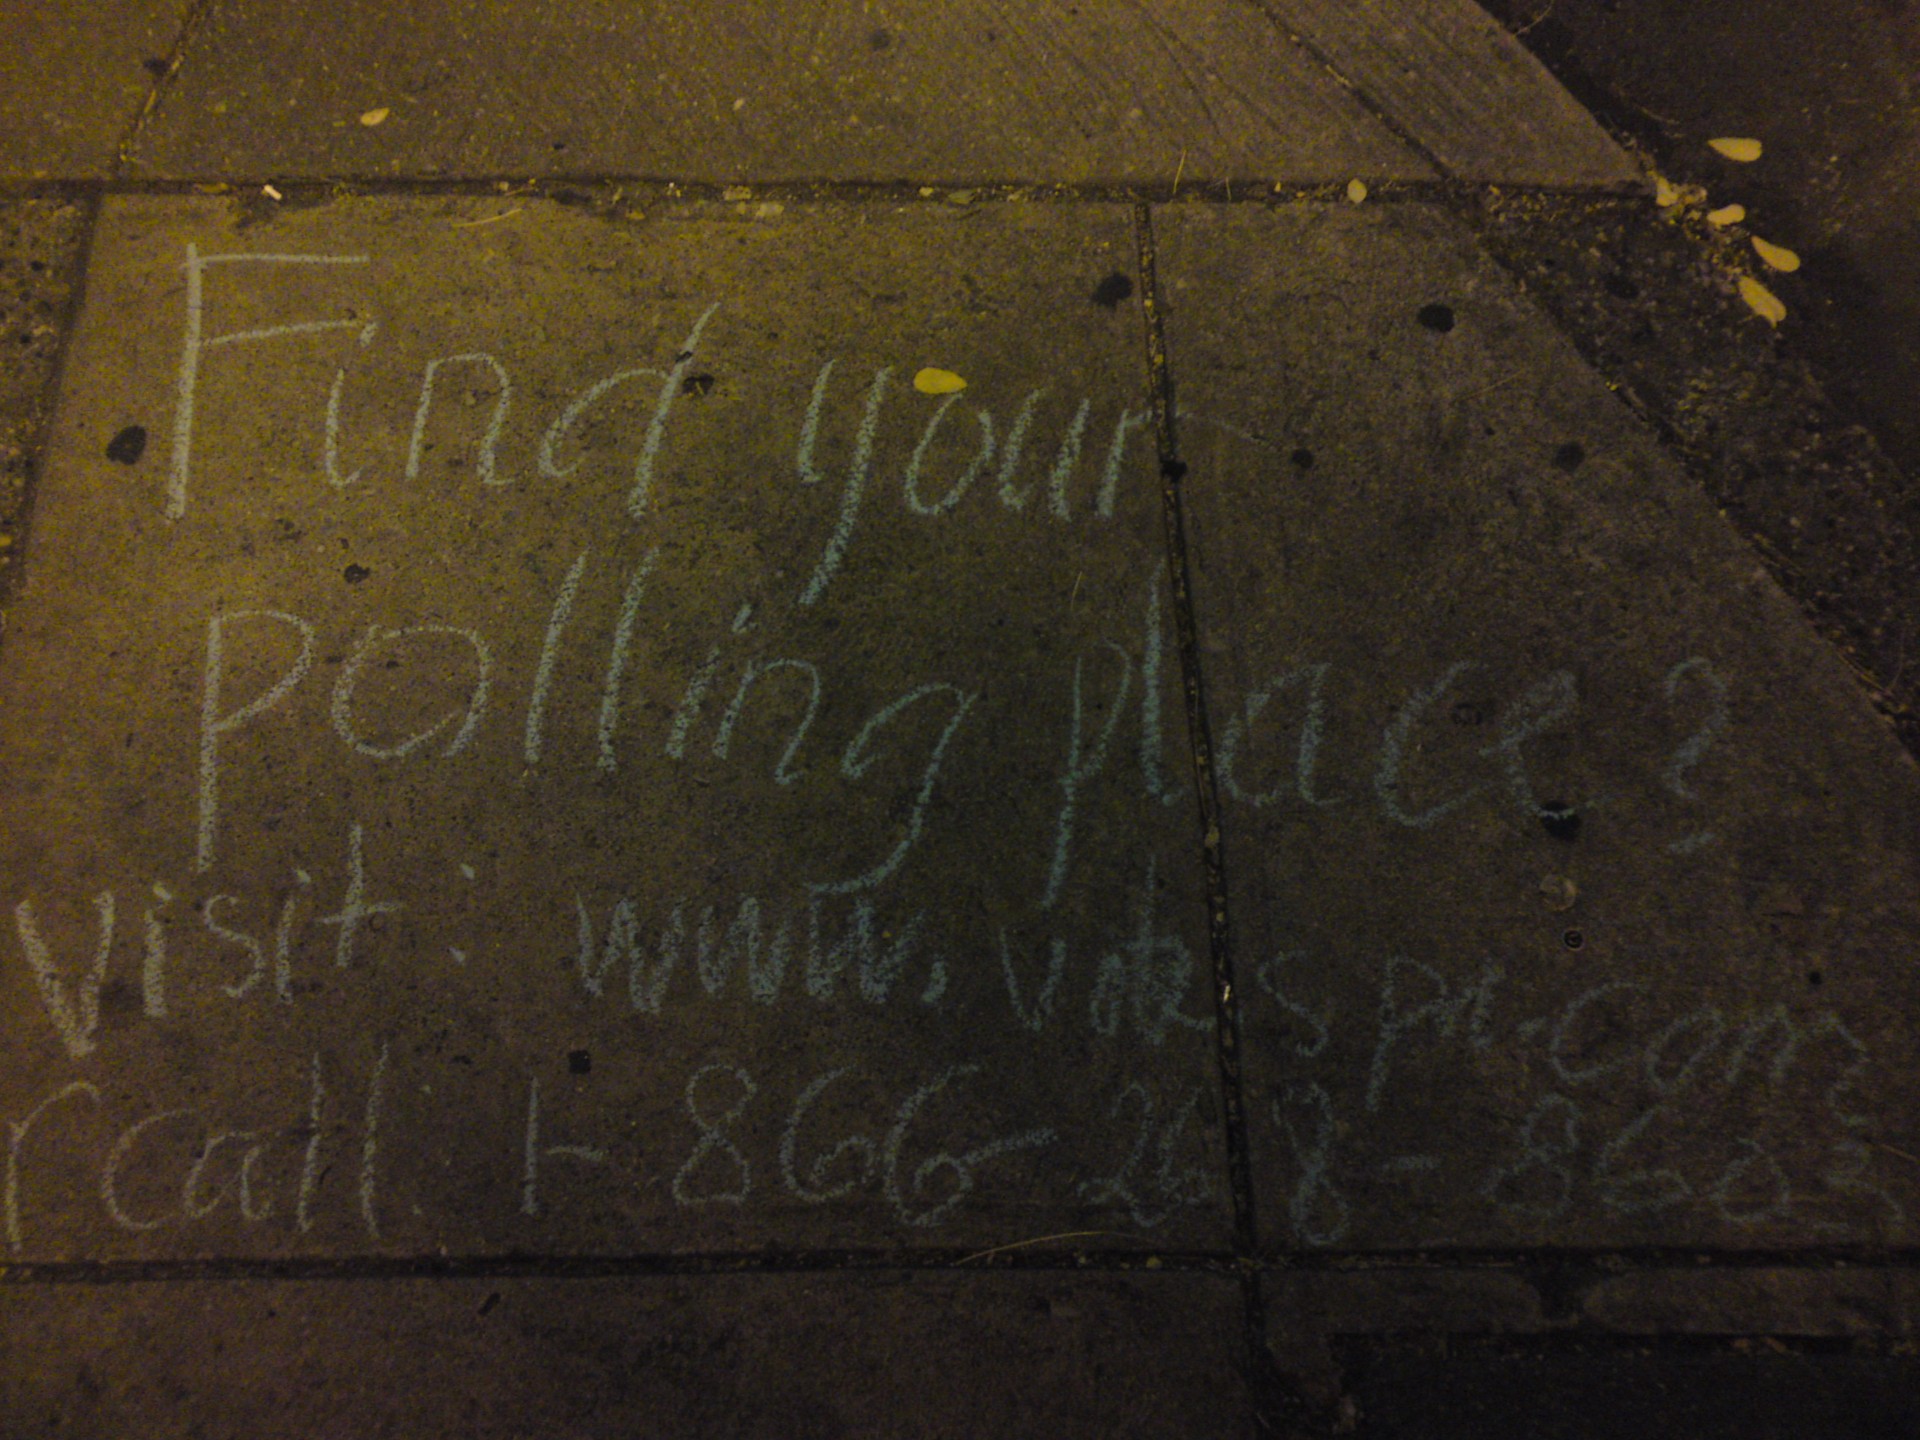 Find your
polling place?
visit: www.votespa.com
rcall 1-866-268-8603